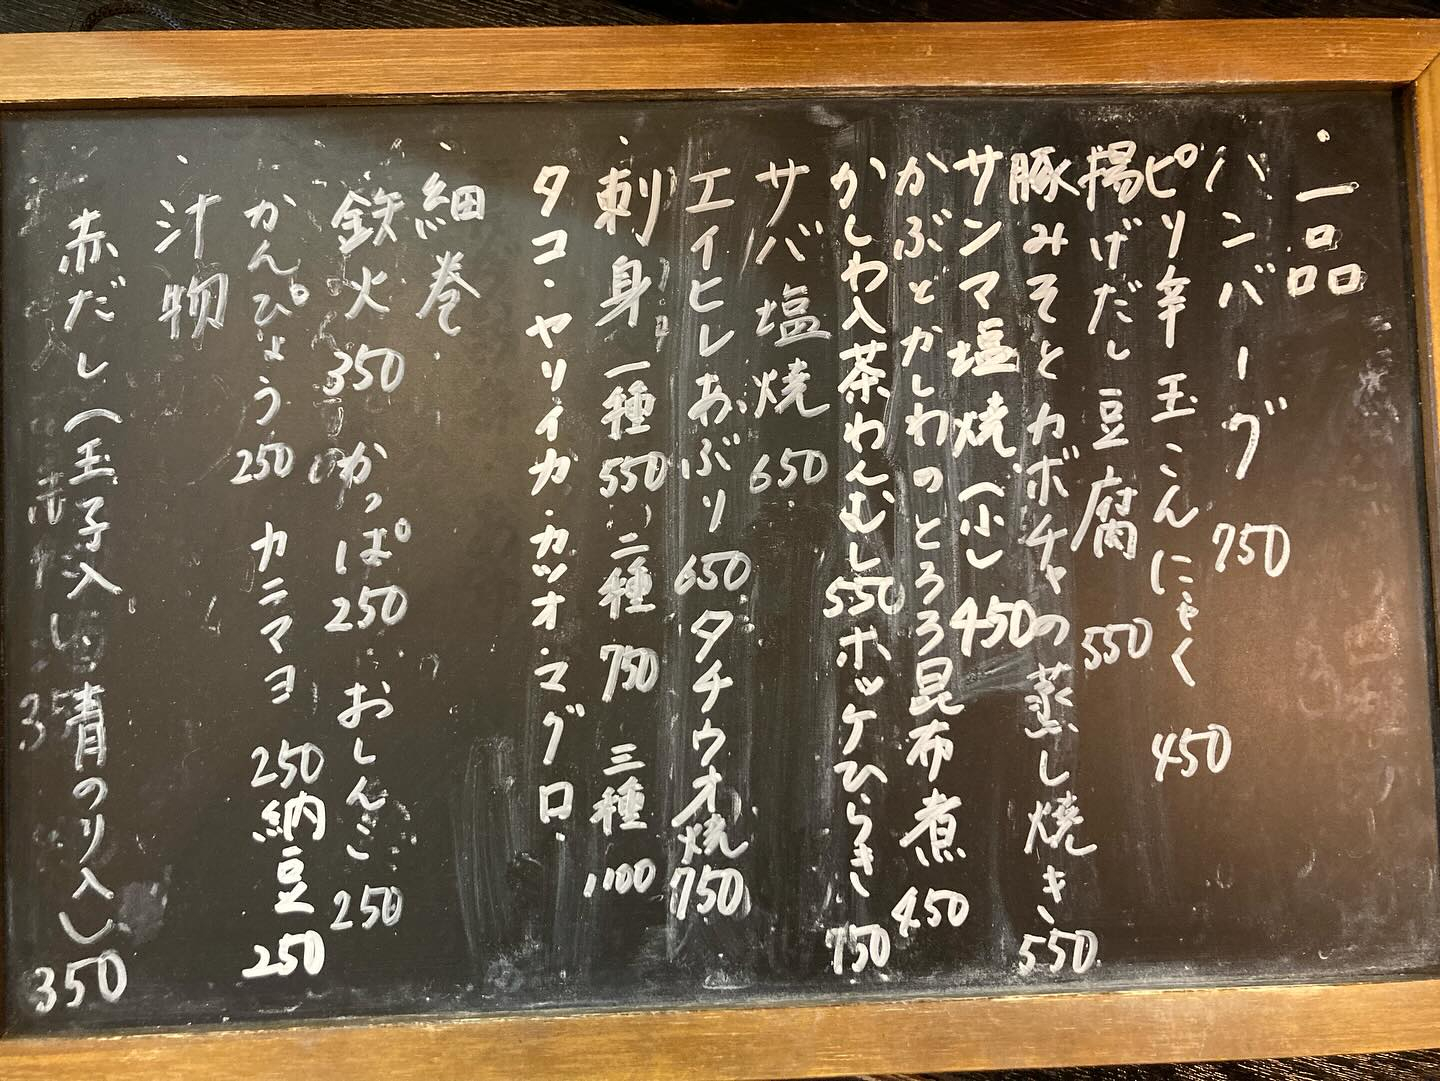 ・一品
ハンバーグ 750
ピリ辛 玉こんにゃく 450
揚げだし豆腐 550
豚みそとカボチャの蒸し焼き 550
サンマ塩焼(小) 450
かぶとかしわのとろろ昆布煮 450
かしわ入茶わんむし 550 ホッケひらき 750
サバ塩焼 650
エイヒレあぶり 650 タチウオ焼 750
・刺身 一種 550 二種 750 三種 1,100
タコ・ヤリイカ・カツオ・マグロ・
・細巻
鉄火 350 かっぱ 250 おしんこ 250
かんぴょう 250 カニマヨ 250 納豆 250
・汁物
赤だし(玉子入り、青のり入り) 350